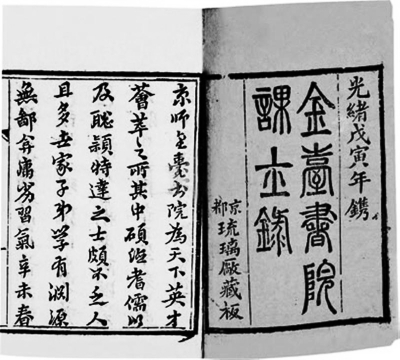 光緒戊寅年鐫
金臺書院
課士錄
京都琉璃廠藏板
京師金臺書院為天下英才
薈萃之所其中碩德耆儒以
及聰穎特達之士頗不乏人
且多世家子弟學有淵源
無鄙弇庸劣習氣辛未春